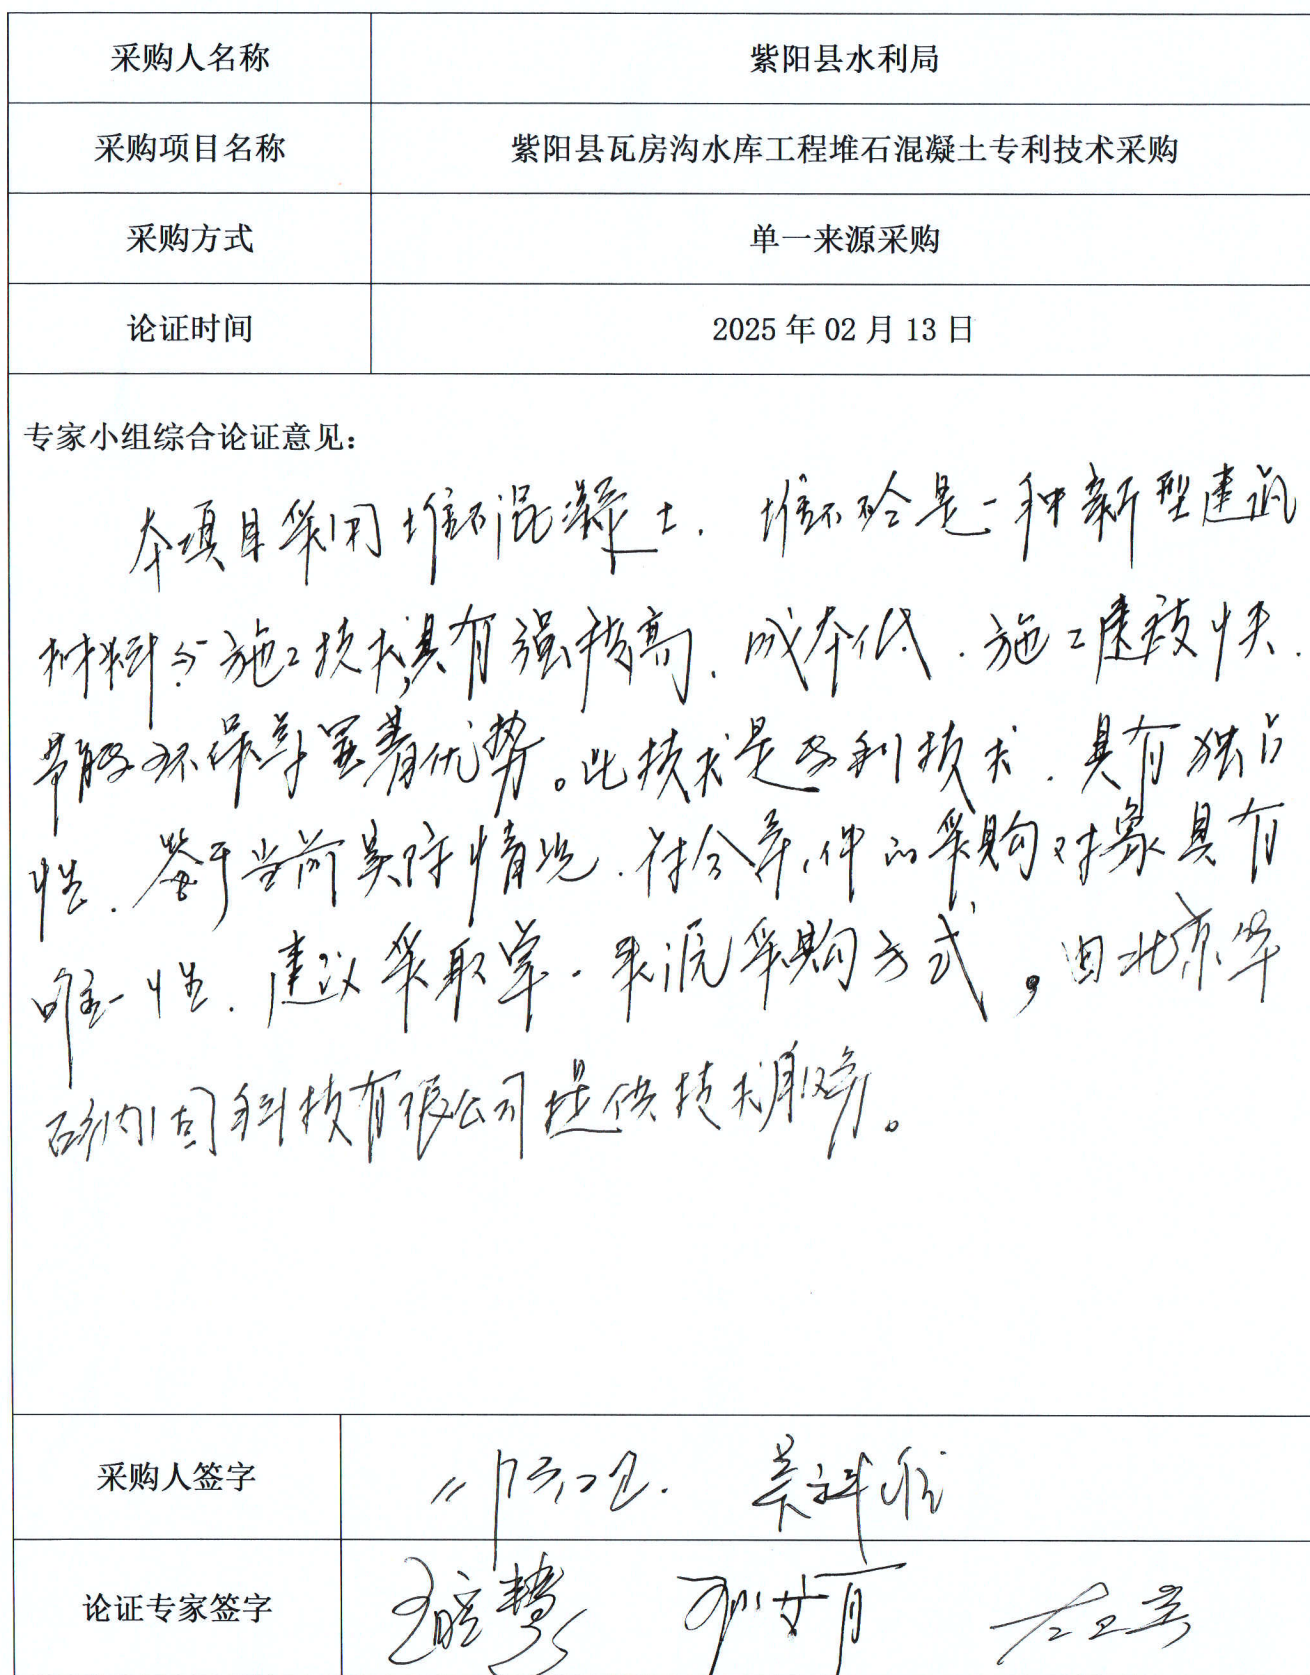 采购人名称 紫阳县水利局
采购项目名称 紫阳县瓦房沟水库工程堆石混凝土专利技术采购
采购方式 单一来源采购
论证时间 2025年02月13日
专家小组综合论证意见：
本项目采用堆石混凝土．堆石砼是一种新型建筑
材料与施工技术,具有强度高．成本低．施工速度快．
节能环保等显著优势。此技术是专利技术．具有独占
性．鉴于当前实际情况．符合条件的采购对象具有
唯一性．建议采取单一来源采购方式，由北京华
石纳固科技有限公司提供技术服务。
采购人签字
论证专家签字